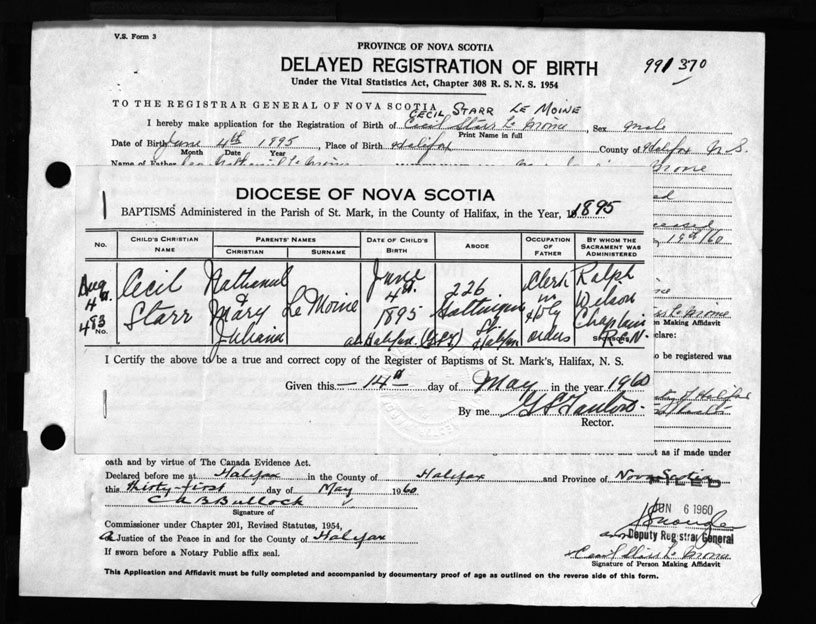 V.S. Form 3
PROVINCE OF NOVA SCOTIA
DELAYED REGISTRATION OF BIRTH
991 370
Under the Vital Statistics Act, Chapter 308 R. S. N. S. 1954
TO THE REGISTRAR GENERAL OF NOVA SCOTIA
CECIL STARR LE MOINE
I hereby make application for the Registration of Birth of Cecil Starr Le Moine, Sex male
Print Name in full
Date of Birth June 4th 1895, Place of Birth Halifax County of Halifax N.S.
Month Date Year
Name of Father Nathaniel Le Moine
DIOCESE OF NOVA SCOTIA
BAPTISMS Administered in the Parish of St. Mark, in the County of Halifax, in the Year, 1895
No. CHILD'S CHRISTIAN NAME PARENTS' NAMES CHRISTIAN SURNAME DATE OF CHILD'S BIRTH ABODE OCCUPATION OF FATHER BY WHOM THE SACRAMENT WAS ADMINISTERED
Aug 4th 483 No. Cecil Starr Nathanel & Mary Juliana Le Moine June 4th 1895 at Halifax 226 St Halifax Clerk in Holy orders Ralph Wilson Chaplain R.N.
SPONSORS
I Certify the above to be a true and correct copy of the Register of Baptisms of St. Mark's, Halifax, N. S.
Given this 14th day of May in the year 1960
By me
Rector.
19th/60
n Making Affidavit
clare:
o be registered was
as if made under
oath and by virtue of The Canada Evidence Act.
Declared before me at Halifax in the County of Halifax and Province of Nova Scotia
this thirty-first day of May 1960
Bullock
Signature of
Commissioner under Chapter 201, Revised Statutes, 1954,
A Justice of the Peace in and for the County of Halifax
If sworn before a Notary Public affix seal.
JUN 6 1960
Deputy Registrar General
Cecil Starr Le Moine
Signature of Person Making Affidavit
This Application and Affidavit must be fully completed and accompanied by documentary proof of age as outlined on the reverse side of this form.